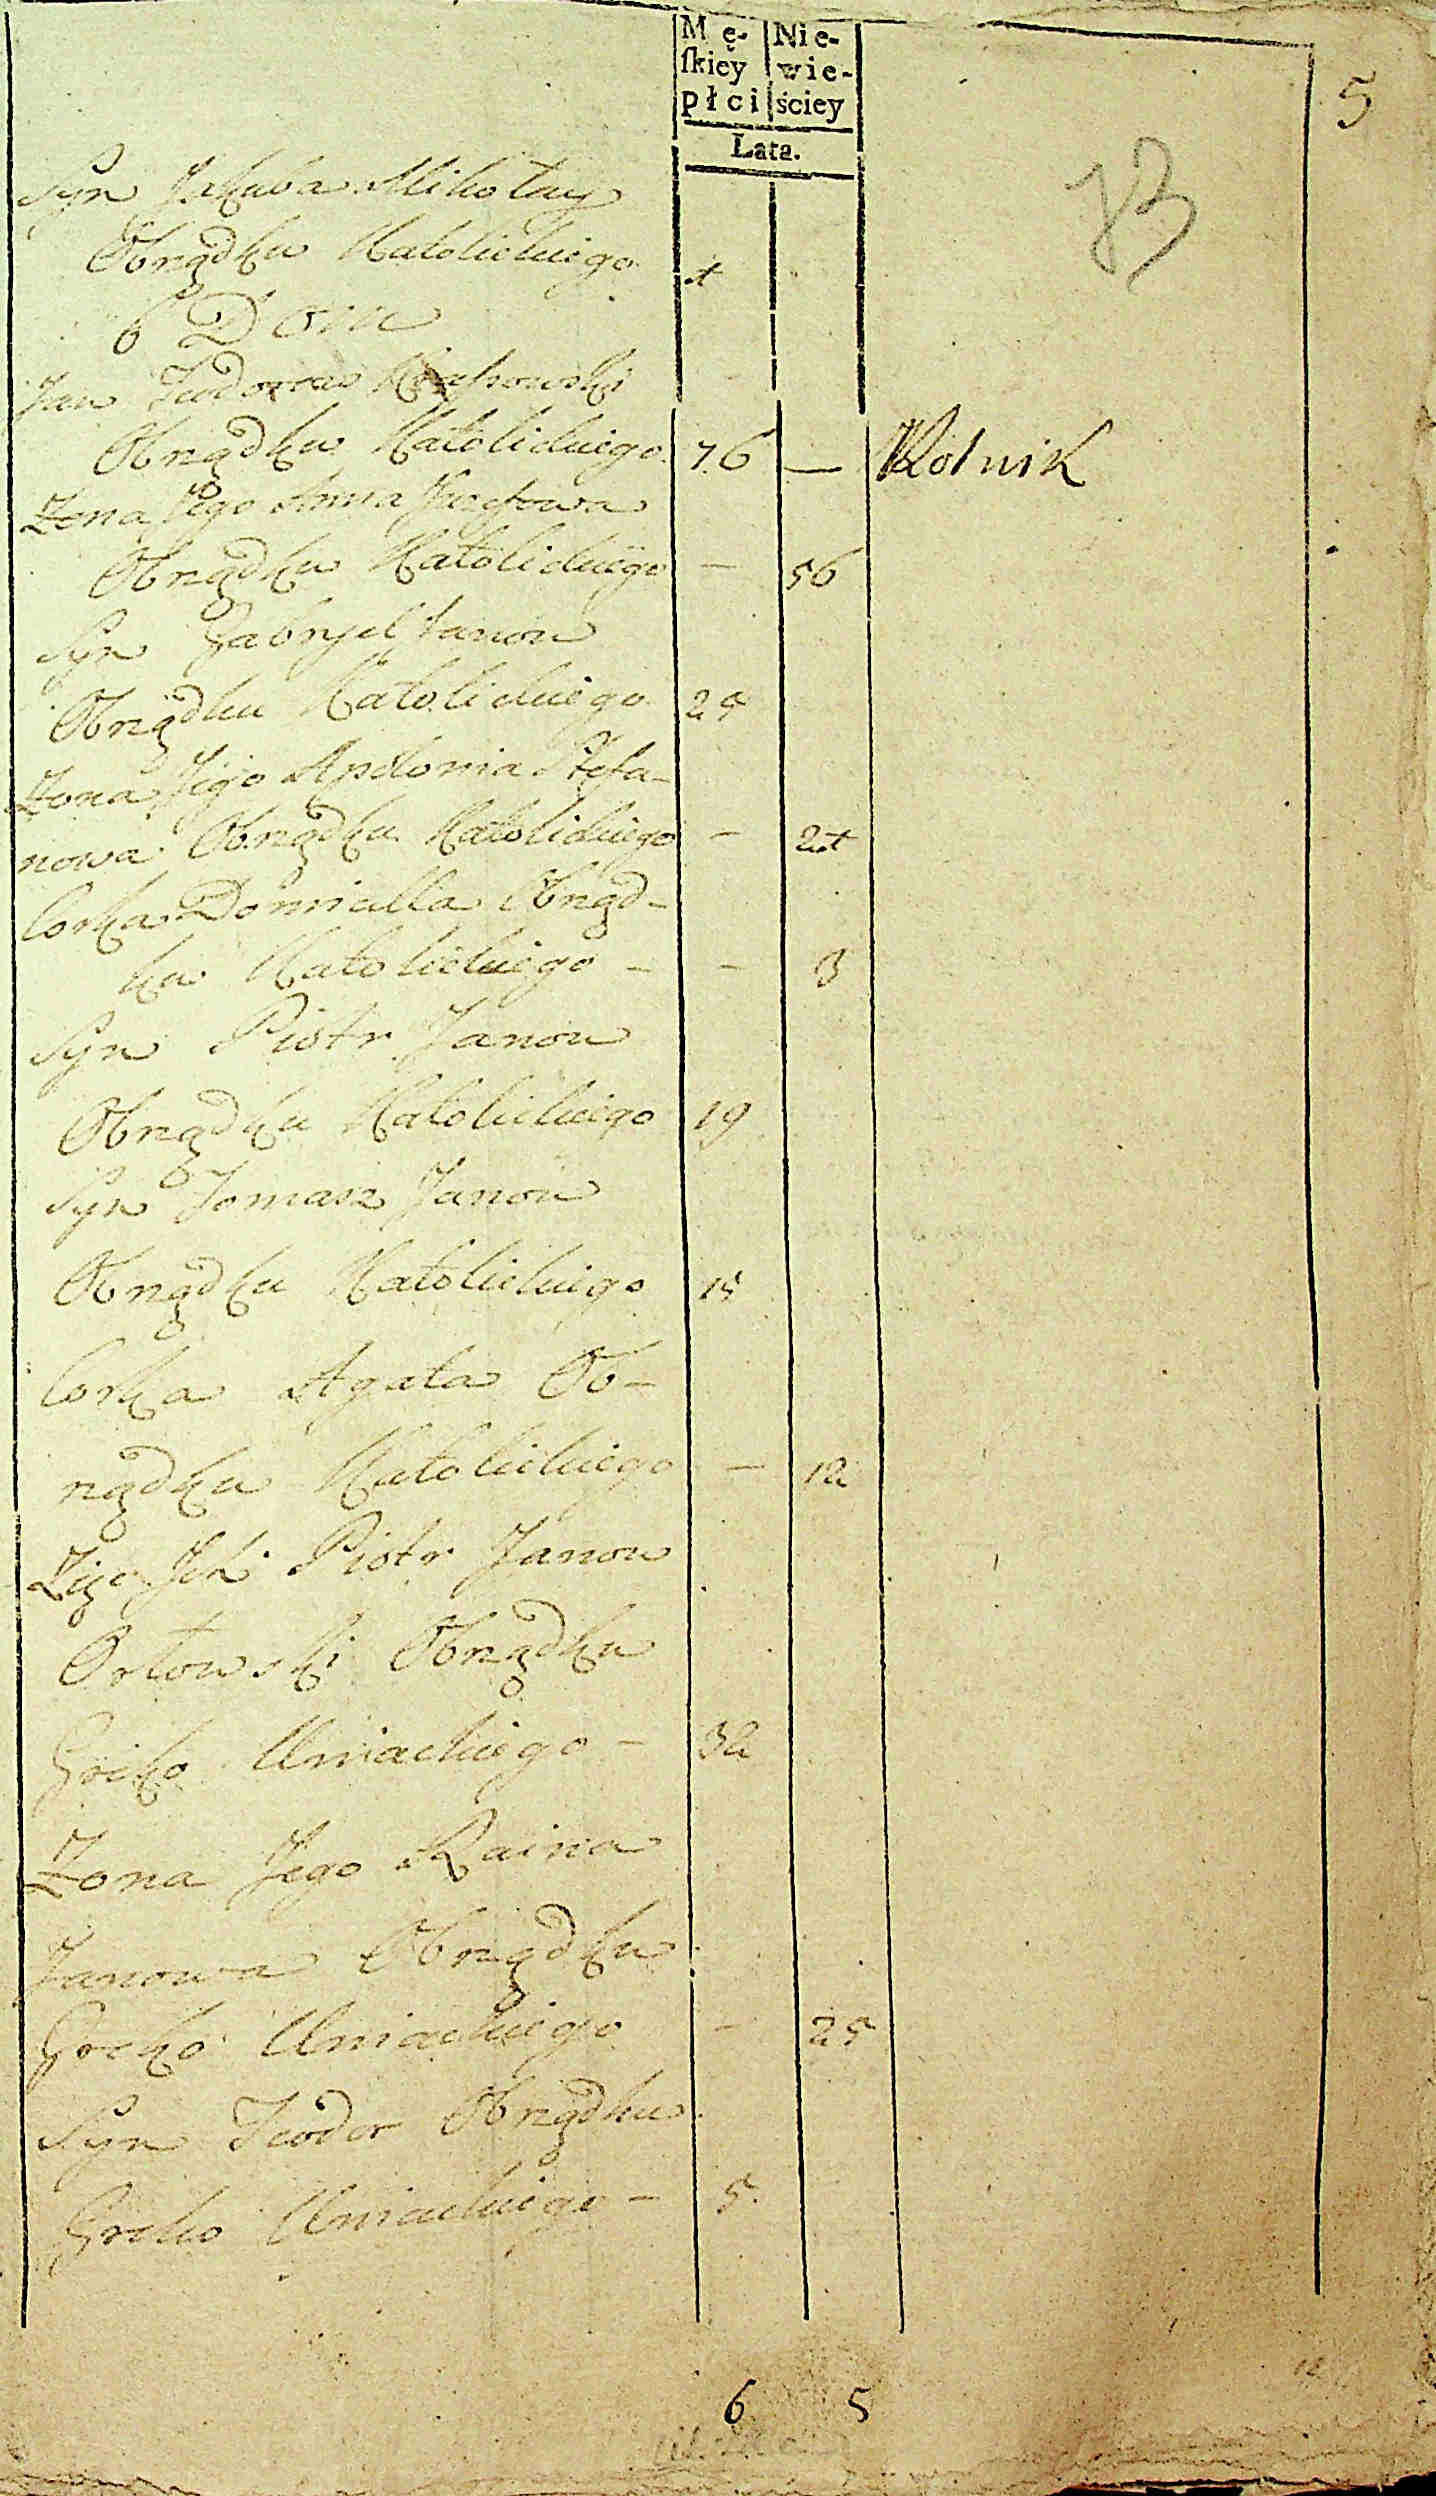 Mę- Nie-
ſkiey wie-
płci ściey
Lata.
5
73
Syn Jakuba Mikołay
Obrządku Katolickiego 4
6 Dom
Jan Teodorow
Obrządku Katolickiego 76 — Rolnik
Żona Jego Anna Juzefowa
Obrządku Katolickiego — 56
Syn Gabryel Janow
Obrządku Katolickiego 25
Żona Jego Apolonia Stefa-
nowa Obrządku Katolickiego — 24
Corka Domicella Obrząd-
ku Katolickiego — — 3
Syn Piotr Janow
Obrządku Katolickiego 19
Syn Tomasz Janow
Obrządku Katolickiego 15
Corka Agata Ob-
rządku Katolickiego — 12
Zięc Ich Piotr Janow
Orłowski Obrządku
Greko Uniackiego — 32
Żona Jego Raina
Janowa Obrządku
Greko Uniackiego — 25
Syn Teodor Obrządku
Greko Uniackiego — 5
6 5